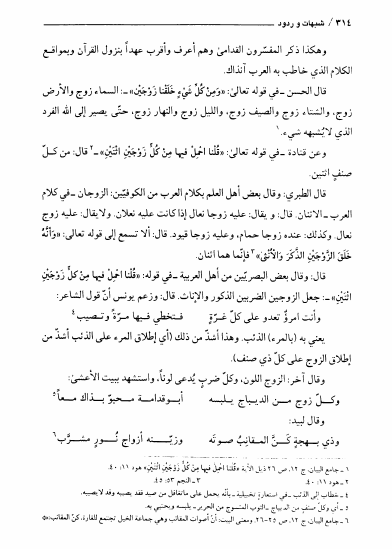 ٣١٤ / شبهات و ردود
وهكذا ذكر المفسّرون القدامىٰ وهم أعرف وأقرب عهداً بنزول القرآن وبمواقع
الكلام الذي خاطب به العرب آنذاك.
قال الحسن ـ في قوله تعالىٰ: «وَمِنْ كُلِّ شَيْءٍ خَلَقْنَا زَوْجَيْنِ» ـ: السماء زوج والأرض
زوج، والشتاء زوج والصيف زوج، والليل زوج والنهار زوج، حتّى يصير إلى الله الفرد
الذي لايُشبهه شيء.١
وعن قتادة ـ في قوله تعالىٰ: «قُلْنَا احْمِلْ فِيها مِنْ كُلٍّ زَوْجَيْنِ اثْنَيْنِ» ـ٢ قال: من كلّ
صنفٍ اثنين.
قال الطبري: وقال بعض أهل العلم بكلام العرب من الكوفيّين: الزوجان ـ في كلام
العرب ـ الاثنان. قال: و يقال: عليه زوجا نعال إذا كانت عليه نعلان. ولايقال: عليه زوج
نعال. وكذلك: عنده زوجا حمام، وعليه زوجا قيود. قال: ألا تسمع إلى قوله تعالى: «وَأَنَّهُ
خَلَقَ الزَّوْجَيْنِ الذَّكَرَ وَالْأُنْثىٰ»٣ فإنّما هما اثنان.
قال: وقال بعض البصريّين من أهل العربية ـ في قوله: «قُلْنَا احْمِلْ فِيها مِنْ كُلٍّ زَوْجَيْنِ
اثْنَيْنِ» ـ: جعل الزوجين الضربين الذكور والإناث. قال: وزعم يونس أنّ قول الشاعر:
وأنت امرؤٌ تعدو على كلّ غرّةٍ فتخطي فيها مرّةً وتصيب٤
يعني به (بالمرء) الذئب. وهذا أشذّ من ذلك (أي إطلاق المرء على الذئب أشذّ من
إطلاق الزوج على كلّ ذي صنف).
وقال آخر: الزوج اللون، وكلّ ضربٍ يُدعى لوناً، واستشهد ببيت الأعشىٰ:
وكــلّ زوجٍ مــن الديـباج يـلبسه أبـوقدامـة مـحبوّ بـذاك مـعاً٥
وقال لبيد:
وذي بـهجةٍ كَـنَّ المـقانِبُ صـوتَه وزيّـــنه أزواجُ نَـــوْرٍ مشـرَّب٦
١ ـ جامع البيان، ج ١٢، ص ٢٦ ذيل الآية «قُلْنَا احْمِلْ فِيها مِنْ كُلٍّ زَوْجَيْنِ اثْنَيْنِ» هود ١١: ٤٠.
٢ ـ هود ١١: ٤٠. ٣ ـ النجم ٥٣: ٤٥.
٤ ـ خطاب إلى الذئب ـ في استعارةٍ تخييلية ـ بأنّه يحمل على ماتغافل من صيد فقد يصيبه وقد لايصيبه.
٥ ـ أي وكلّ صنفٍ من الديباج ـ الثوب المنسوج من الحرير ـ يلبسه ويحتبي به.
٦ ـ جامع البيان، ج ١٢، ص ٢٥-٢٦. ومعنى البيت: أنّ أصوات المقانب وهي جماعة الخيل تجتمع للغارة، كنّ المقانب: ⇦